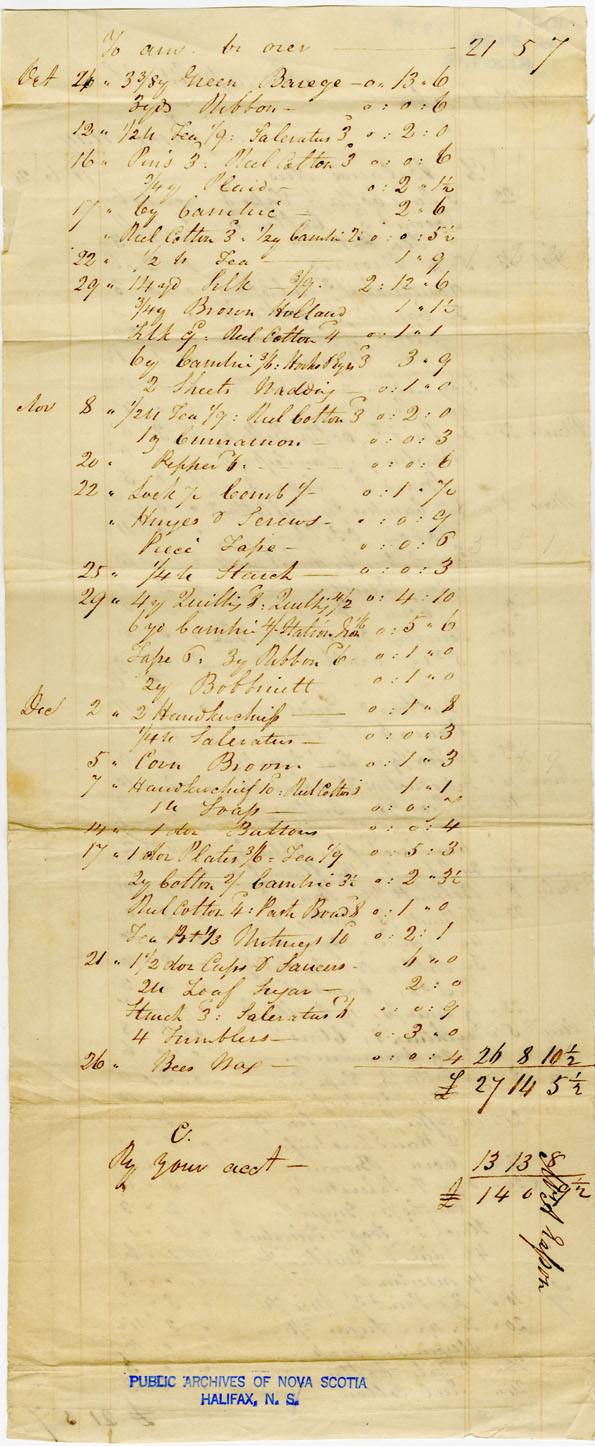 To amt br over 21 5 7
Oct 26 " 3 3/8 y Green Barege - 0 " 13 " 6
3 yds Ribbon - 0 : 0 : 6
12 " 1/2 lb Tea 1/9 : Saleratus 3 0 : 2 : 0
16 " Pins 3 : Reel Cotton 3 0 : 0 : 6
3/4 y Plaid - 0 : 2 " 1½
17 " 6y Cambric - 2 " 6
" Reel Cotton 3 " 1/2 y Cambric 2½ 0 : 0 : 5½
22 " 1/2 lb Tea 1 " 9
29 " 14 yd Silk - 3/9 : 2 : 12 " 6
3/4 y Brown Holland 1 " 1½
Silk 9 : Reel Cotton 4 0 : 1 " 1
6y Cambric : Hooks & Eyes 3 3 " 9
2 Sheets Wadding - 0 : 1 " 0
Nov 8 " 1/2 lb Tea 1/9 : Reel Cotton 3 0 : 2 : 0
1 Cinnamon - 0 : 0 : 3
20 " Pepper 6 - 0 : 0 : 6
22 " Lock Comb 1/- 0 : 1 "
" Hinges & Screws - " : 0 : 9
Piece Tape - 0 : 0 : 6
25 " 1/4 lb Starch - 0 : 0 : 3
29 " 4 y Quilting : Quilting 0 : 4 : 10
6 yd Cambric 0 " 5 " 6
Tape 6 . 3y Ribbon 6 0 : 1 " 0
2y Bobbinett 0 : 1 " 0
Dec 2 " 2 Handkerchiefs 0 : 1 " 8
1/4 lb Saleratus - 0 : 0 " 3
5 " Corn Broom - 0 : 1 " 3
7 " Handkerchief 10 : Reel Cotton 3 1 " 1
1 lb Soap - 0 : 0 : 7
14 " 1 doz Buttons 0 : 0 : 4
17 " 1 doz Plates 3/6 - Tea 1/9 0 : 5 : 3
2y Cotton 2/ Cambric 3½ 0 : 2 " 3½
Reel Cotton 4 : Paste Board 8 0 : 1 " 0
Tea Pot 1/3 Nutmegs 10 0 : 2 : 1
21 " 1 1/2 doz Cups & Saucers - 4 " 0
2 lb Loaf Sugar - 2 : 0
Starch 3 : Saleratus 6 0 : 0 : 9
4 Tumblers - 0 : 3 " 0
26 " Bees Wax - 0 : 0 : 4 26 8 10½
£ 27 14 5½
Cr
By your acct - 13 13 8
£ 14 0 9½
PUBLIC ARCHIVES OF NOVA SCOTIA
HALIFAX, N. S.